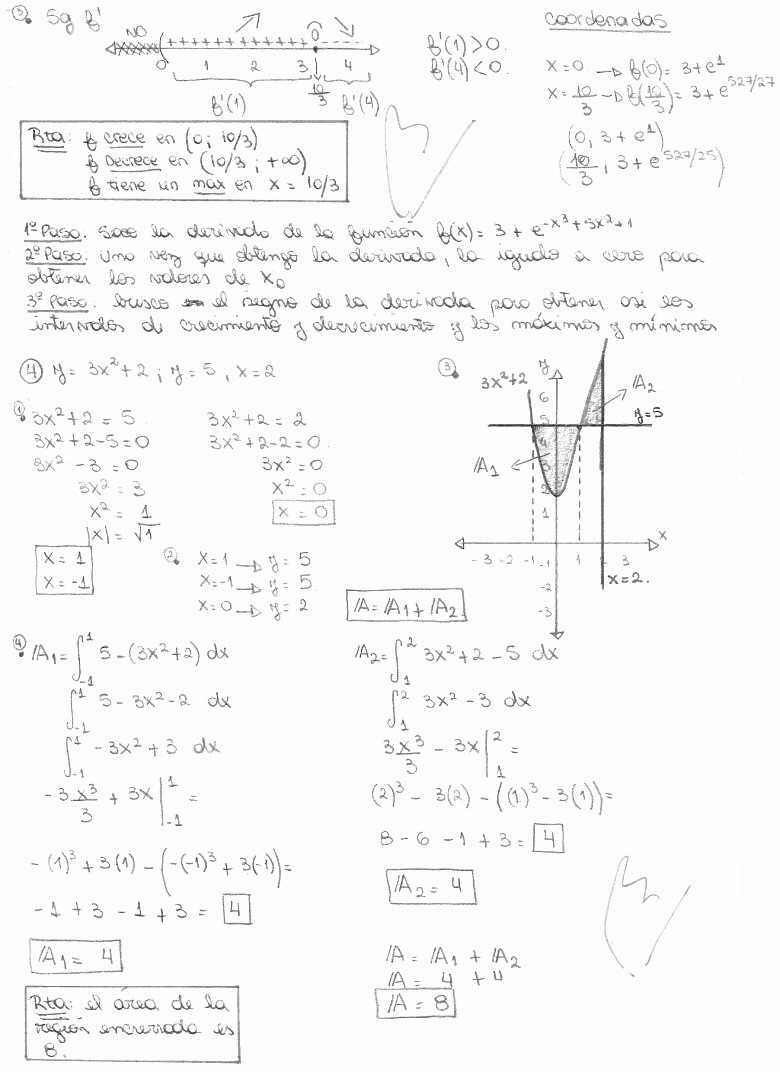 ③ Sg f'
NO + + + + + + + + + + + + + + + 0 - - - -
0 1 2 3 10/3 4
f'(1) f'(4)
f'(1) > 0.
f'(4) < 0.
Coordenadas
x = 0 → f(0) = 3 + e^1
x = 10/3 → f(10/3) = 3 + e^527/27
(0, 3 + e^1)
(10/3, 3 + e^527/25)
Rta: f crece en (0; 10/3)
f Decrece en (10/3; +∞)
f tiene un max en x = 10/3
1º Paso. Saco la derivada de la función f(x) = 3 + e^-x^3+5x^2+1
2º Paso. Una vez que obtengo la derivada, la igualo a cero para
obtener los valores de x0
3º Paso. busco el signo de la derivada para obtener asi los
intervalos de crecimiento y decrecimiento y los máximos y mínimos
④ y = 3x² + 2 ; y = 5 , x = 2
①
3x² + 2 = 5
3x² + 2 - 5 = 0
3x² - 3 = 0
3x² = 3
x² = 1
|x| = √1
x = 1
x = -1
3x² + 2 = 2
3x² + 2 - 2 = 0
3x² = 0
x² = 0
x = 0
②
x = 1 → y = 5
x = -1 → y = 5
x = 0 → y = 2
/A = /A1 + /A2
③
3x²+2
y
6
5
4
3
2
1
/A2
y=5
/A1
x
-3 -2 -1 1 3
-1
-2
-3
x=2.
④
/A1 = ∫_-1^1 5 - (3x² + 2) dx
∫_-1^1 5 - 3x² - 2 dx
∫_-1^1 -3x² + 3 dx
-3 x³/3 + 3x |_-1^1 =
-(1)³ + 3(1) - (-(-1)³ + 3(-1)) =
-1 + 3 - 1 + 3 = 4
/A1 = 4
Rta: el área de la
región encerrada es
8.
/A2 = ∫_1^2 3x² + 2 - 5 dx
∫_1^2 3x² - 3 dx
3x³/3 - 3x |_1^2 =
(2)³ - 3(2) - ((1)³ - 3(1)) =
8 - 6 - 1 + 3 = 4
/A2 = 4
/A = /A1 + /A2
/A = 4 + 4
/A = 8